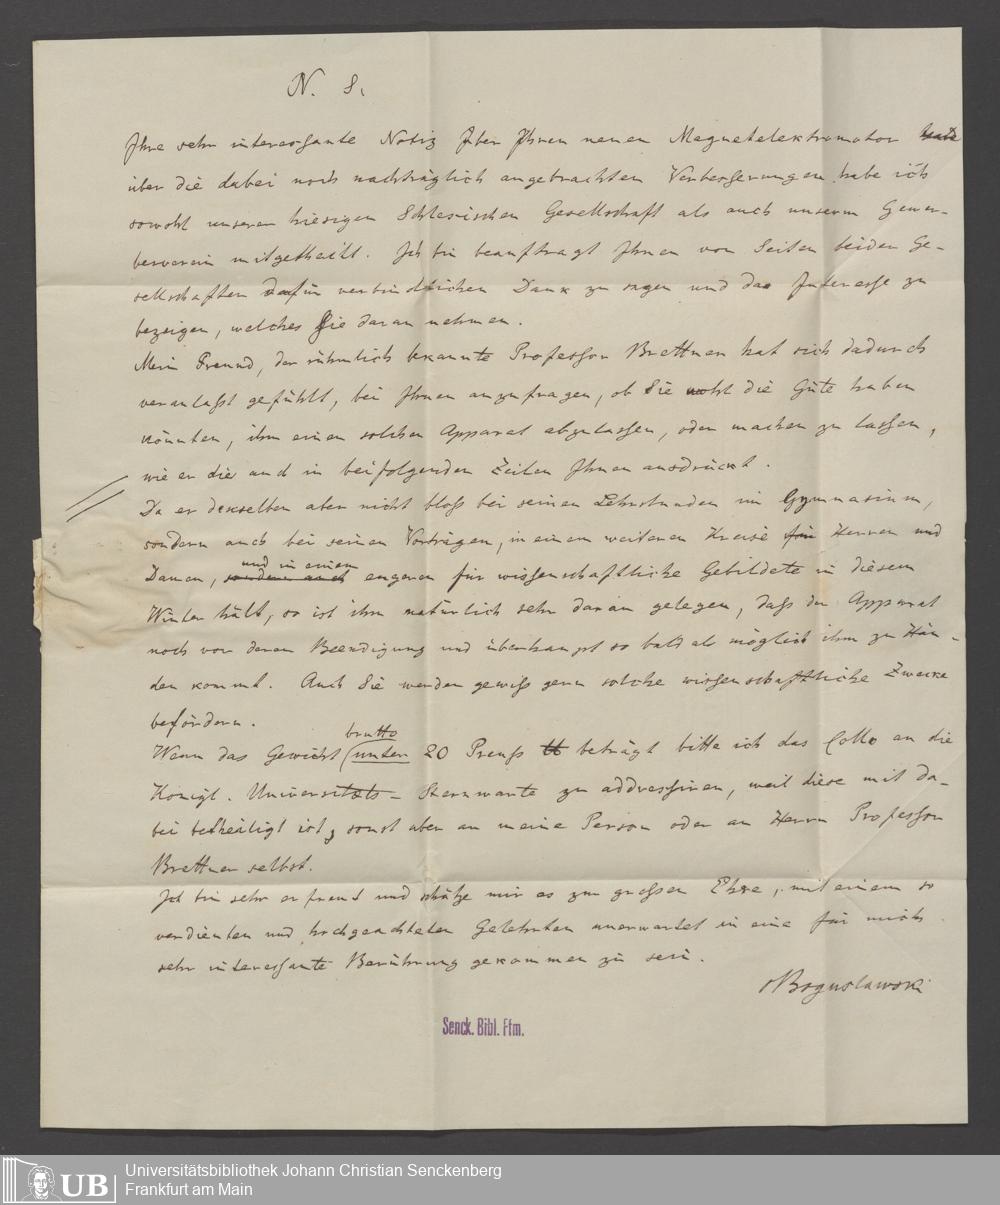 N. 8.
Ihre sehr interessante Notiz über Ihren neuen Magnetelektromotor
über die dabei noch nachträglich angebrachten Verbesserungen habe ich
sowohl unserer hiesigen Schlesischen Gesellschaft als auch unserm Gewer-
beverein mitgetheilt. Ich bin beauftragt Ihnen von Seiten beider Ge-
sellschaften dafür verbindlichen Dank zu sagen und das Interesse zu
bezeigen, welches Sie daran nehmen.
Mein Freund, der rühmlich bekannte Professor Brettner hat sich dadurch
veranlaßt gefühlt, bei Ihnen anzufragen, ob Sie wohl die Güte haben
könnten, ihm einen solchen Apparat abzulassen, oder machen zu lassen,
wie er die und in beifolgenden Zeilen Ihnen ausdrückt.
Da er denselben aber nicht bloß bei seinen Lehrstunden im Gymnasium,
sondern auch bei seinen Vorträgen, in einem weiteren Kreise für Herren und
und in einem
Damen, sondern auch engeren für wissenschaftliche Gebildete in diesem
Winter hält, so ist ihm natürlich sehr daran gelegen, daß der Apparat
noch vor deren Beendigung und überhaupt so bald als möglich ihm zu Hän-
den kommt. Auch Sie werden gewiß gern solche wissenschaftliche Zwecke
befördern.
brutto
Wenn das Gewicht (unter 20 Preuß ℔ beträgt bitte ich das Collo an die
Königl. Universitäts-Sternwarte zu addressiren, weil diese mit da-
bei betheiligt ist, sonst aber an meine Person oder an Herrn Professor
Brettner selbst.
Ich bin sehr erfreut und schätze mir es zur großen Ehre, mit einem so
verdienten und hochgeachteten Gelehrten unerwartet in eine für mich
sehr interessante Berührung gekommen zu sein.
vBoguslawski
Senck. Bibl. Ffm.
UB
Universitätsbibliothek Johann Christian Senckenberg
Frankfurt am Main